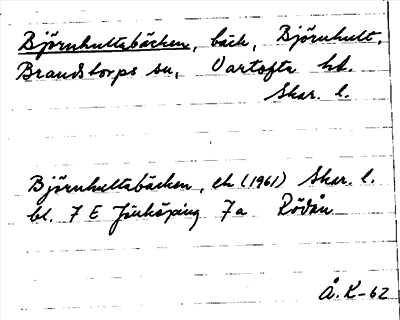 Björnhultabäcken, bäck, Björnhult,
Brandstorps sn, Vartofta hd.
Skar. l.
Björnhultabäcken, ek (1961) Skar. l.
bl. 7 E Jönköping 7a Rödån
Å. K-62